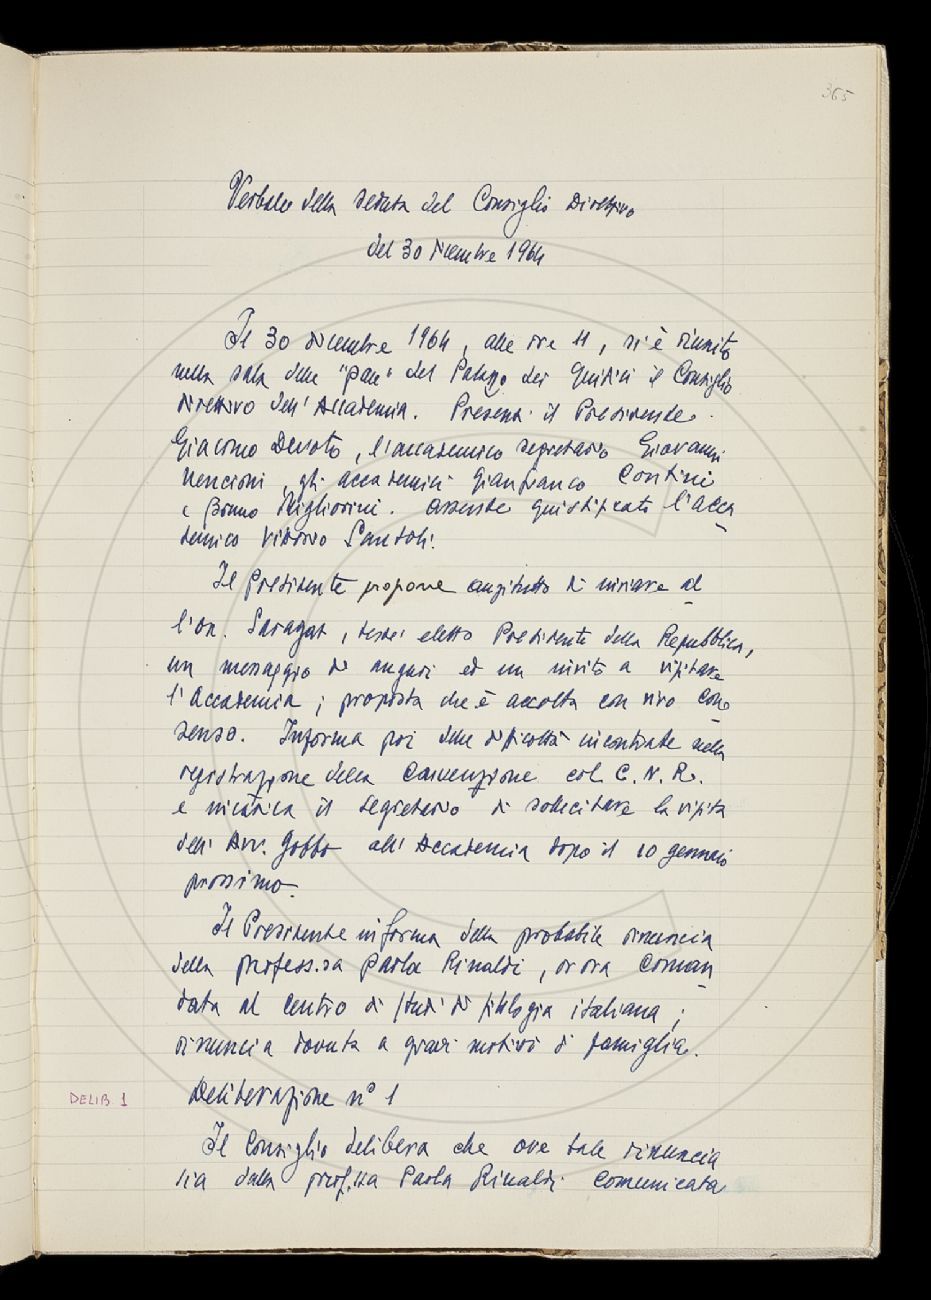 365
Verbale della seduta del Consiglio Direttivo
del 30 dicembre 1964
Il 30 dicembre 1964, alle ore 11, si è riunito
nella sala delle "pale" del Palazzo dei Giudici il Consiglio
direttivo dell'Accademia. Presenti il Presidente
Giacomo Devoto, l'accademico segretario Giovanni
Nencioni, gli accademici Gianfranco Contini
e Bruno Migliorini. Assente giustificato l'acca
demico Vittorio Santoli.
Il Presidente propone anzitutto di inviare al
l'on. Saragat, testé eletto Presidente della Repubblica,
un messaggio di auguri ed un invito a visitare
l'Accademia; proposta che è accolta con vivo con
senso. Informa poi delle difficoltà incontrate nella
registrazione della Convenzione col C.N.R.
e incarica il Segretario di sollecitare la visita
dell'Avv. Gobbo all'Accademia dopo il 10 gennaio
prossimo.
Il Presidente informa della probabile rinuncia
della profess.sa Paola Rinaldi, or ora coman
data al Centro di studi di filologia italiana;
rinuncia dovuta a gravi motivi di famiglia.
DELIB. 1
Deliberazione n° 1
Il Consiglio delibera che ove tale rinuncia
sia dalla prof.ssa Paola Rinaldi comunicata